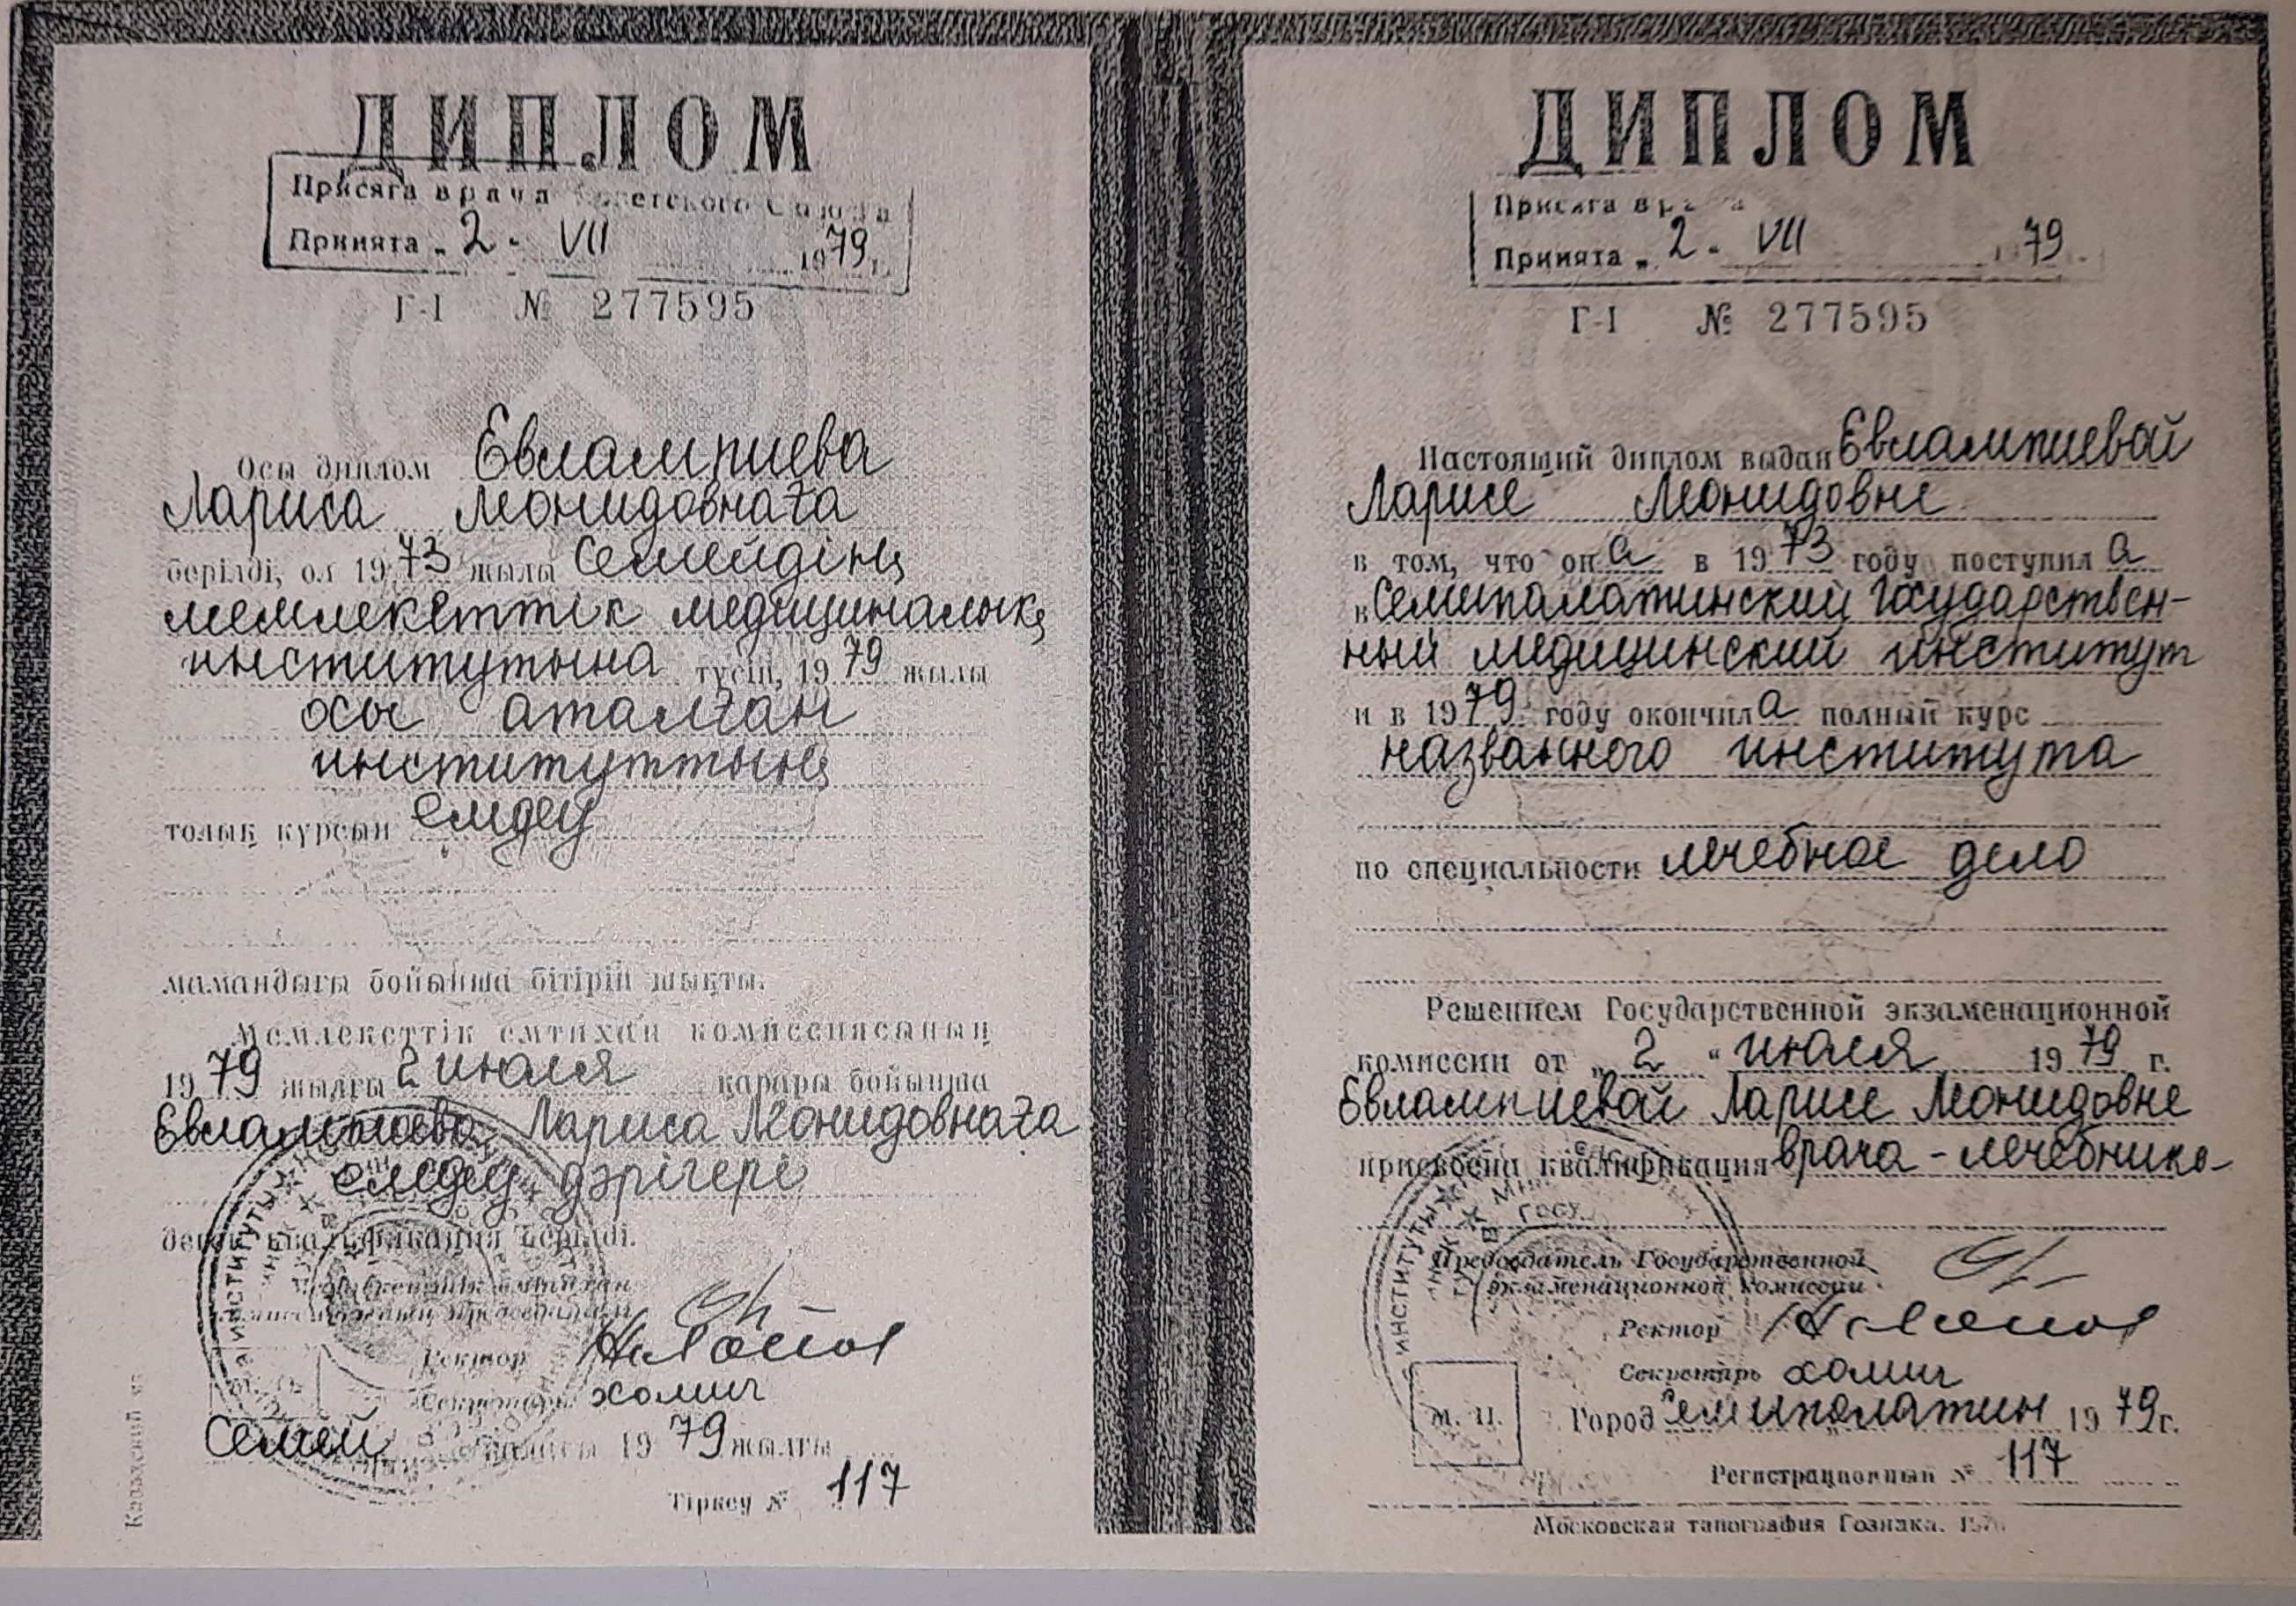 ДИПЛОМ
Присяга врача Советского Союза
Принята „ 2 “ VII 1979 г.
Г-I № 277595
Осы диплом Евлампиева
Лариса Леонидовнаға
берілді, ол 1973 жылы Семейдің
мемлекеттік медициналық
институтына түсіп, 1979 жылы
осы аталған
институттың
толық курсын емдеу
мамандығы бойынша бітіріп шықты.
Мемлекеттік емтихан комиссиясының
1979 жылғы 2 июля қарары бойынша
Евлампиева Лариса Леонидовнаға
емдеу дәрігері
деген квалификация берілді.
Ректор
Секретарь Хомич
Семей қаласы 1979 жылғы
Тіркеу № 117
ДИПЛОМ
Присяга врача
Принята „ 2 “ VII 1979
Г-I № 277595
Настоящий диплом выдан Евлампиевой
Ларисе Леонидовне
в том, что она в 1973 году поступила
в Семипалатинский Государствен-
ный медицинский институт
и в 1979 году окончила полный курс
названного института
по специальности лечебное дело
Решением Государственной экзаменационной
комиссии от „ 2 “ июля 1979 г.
Евлампиевой Ларисе Леонидовне
присвоена квалификация врача-лечебника
Председатель Государственной
экзаменационной комиссии
Ректор
Секретарь Хомич
М. П.
Город Семипалатинск 1979 г.
Регистрационный № 117
Московская типография Гознака.